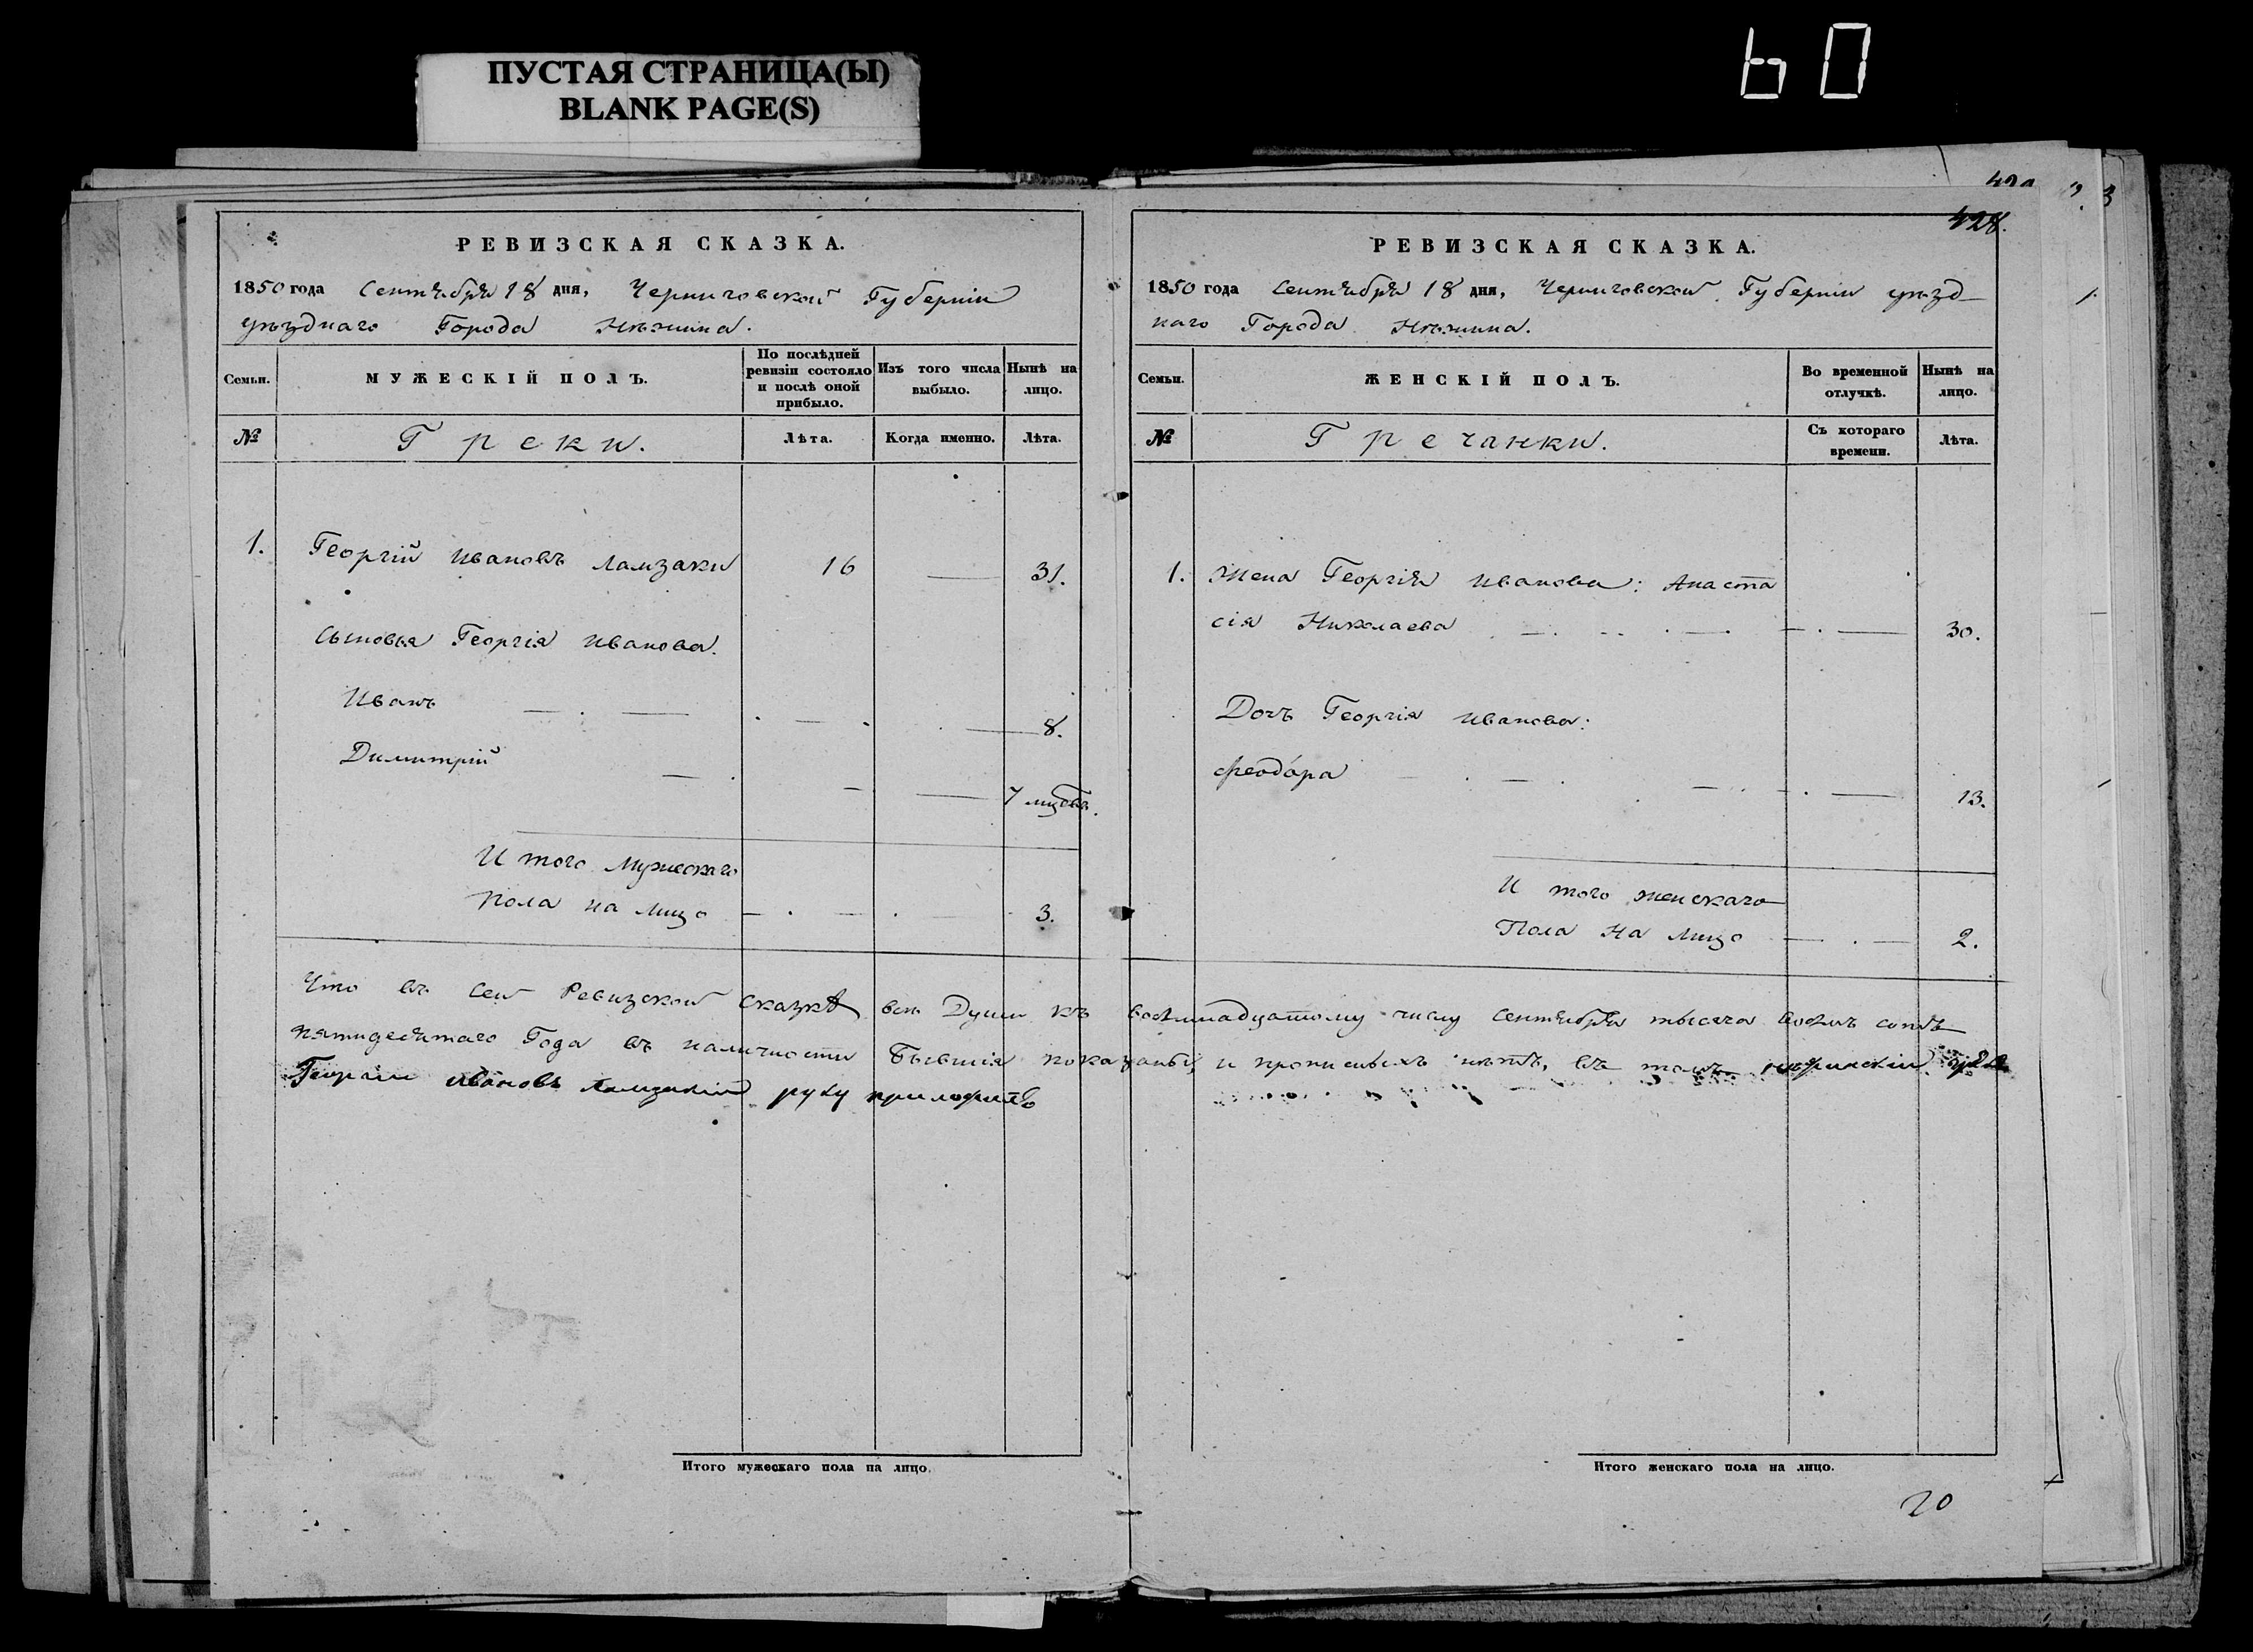 ПУСТАЯ СТРАНИЦА(Ы)
BLANK PAGE(S)
60
РЕВИЗСКАЯ СКАЗКА.
1850 года Сентября 18 дня, Черниговской Губерніи
уѣзднаго Города Нѣжина.
Семьи.
МУЖЕСКІЙ ПОЛЪ.
По послѣдней
ревизіи состояло
и послѣ оной
прибыло.
Изъ того числа
выбыло.
Нынѣ на
лицо.
№
Греки.
Лѣта.
Когда именно.
Лѣта.
1. Георгій Ивановъ Ламзаки 16 — 31.
Сыновья Георгія Иванова.
Иванъ 8.
Димитрій 7 мцовъ.
И того Мужескаго
Пола на лицо 3.
428.
РЕВИЗСКАЯ СКАЗКА.
1850 года Сентября 18 дня, Черниговской Губерніи уѣзд-
наго Города Нѣжина.
Семьи.
ЖЕНСКІЙ ПОЛЪ.
Во временной
отлучкѣ.
Нынѣ на
лицо.
№
Гречанки.
Съ котораго
времени.
Лѣта.
1. Жена Георгія Иванова: Анаста
сія Николаева 30.
Дочь Георгія Иванова:
Феодора 13.
И того женскаго
Пола на лицо 2.
Что въ сей Ревизской сказкѣ всѣ Души къ восемнадцатому числу Сентября тысяча восемъ сотъ
пятидесятаго Года въ наличности бывшія показаны, и прописныхъ нѣтъ, въ томъ нѣжинскій грекъ
Георгій Ивановъ Ламзакій руку приложилъ
Итого мужескаго пола на лицо.
Итого женскаго пола на лицо.
20